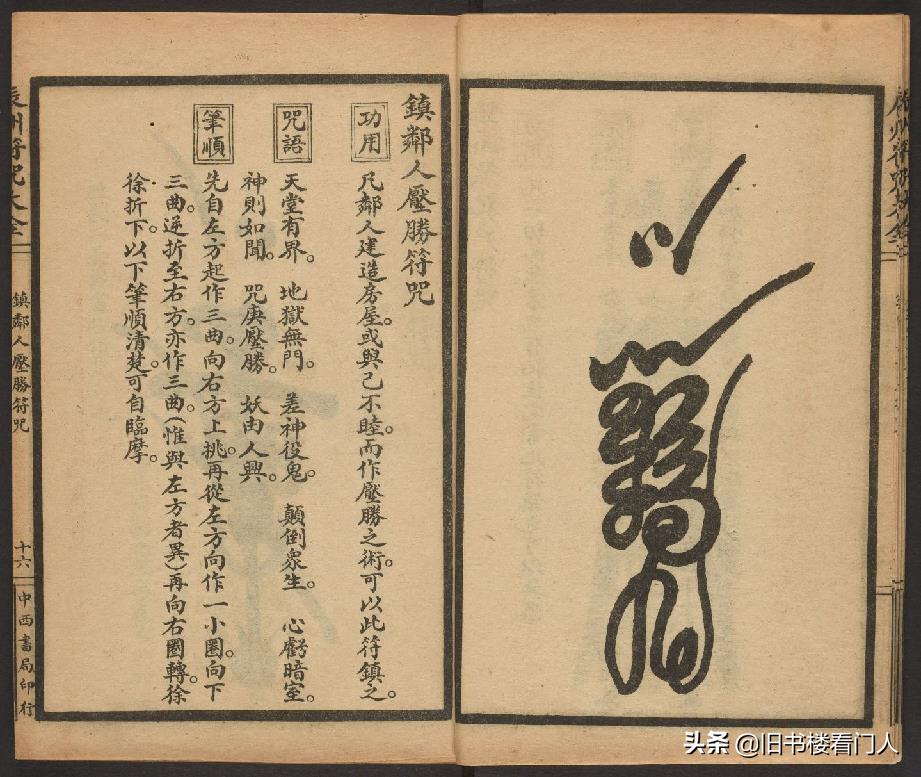 鎮鄰人壓勝符咒
功用
凡鄰人建造房屋。或與己不睦。而作壓勝之術。可以此符鎮之。
咒語
天堂有界。地獄無門。差神役鬼。顛倒衆生。心虧暗室。
神則如聞。咒庚壓勝。妖由人興。
筆順
先自左方起作三曲。向右方上挑。再從左方向作一小圈。向下
三曲。逆折至右方。亦作三曲。(惟與左方者異)再向右圈轉。徐
徐折下。以下筆順清楚。可自臨摩。
辰州符咒大全
鎮鄰人壓勝符咒
十六
中西書局印行
头条 @旧书楼看门人